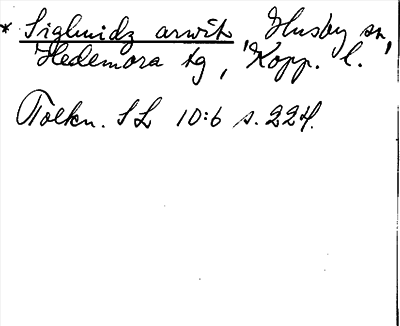 * Sighuidz arwit, Husby sn,
Hedemora tg, Kopp. l.
Tolkn. SL 10:6 s. 224.